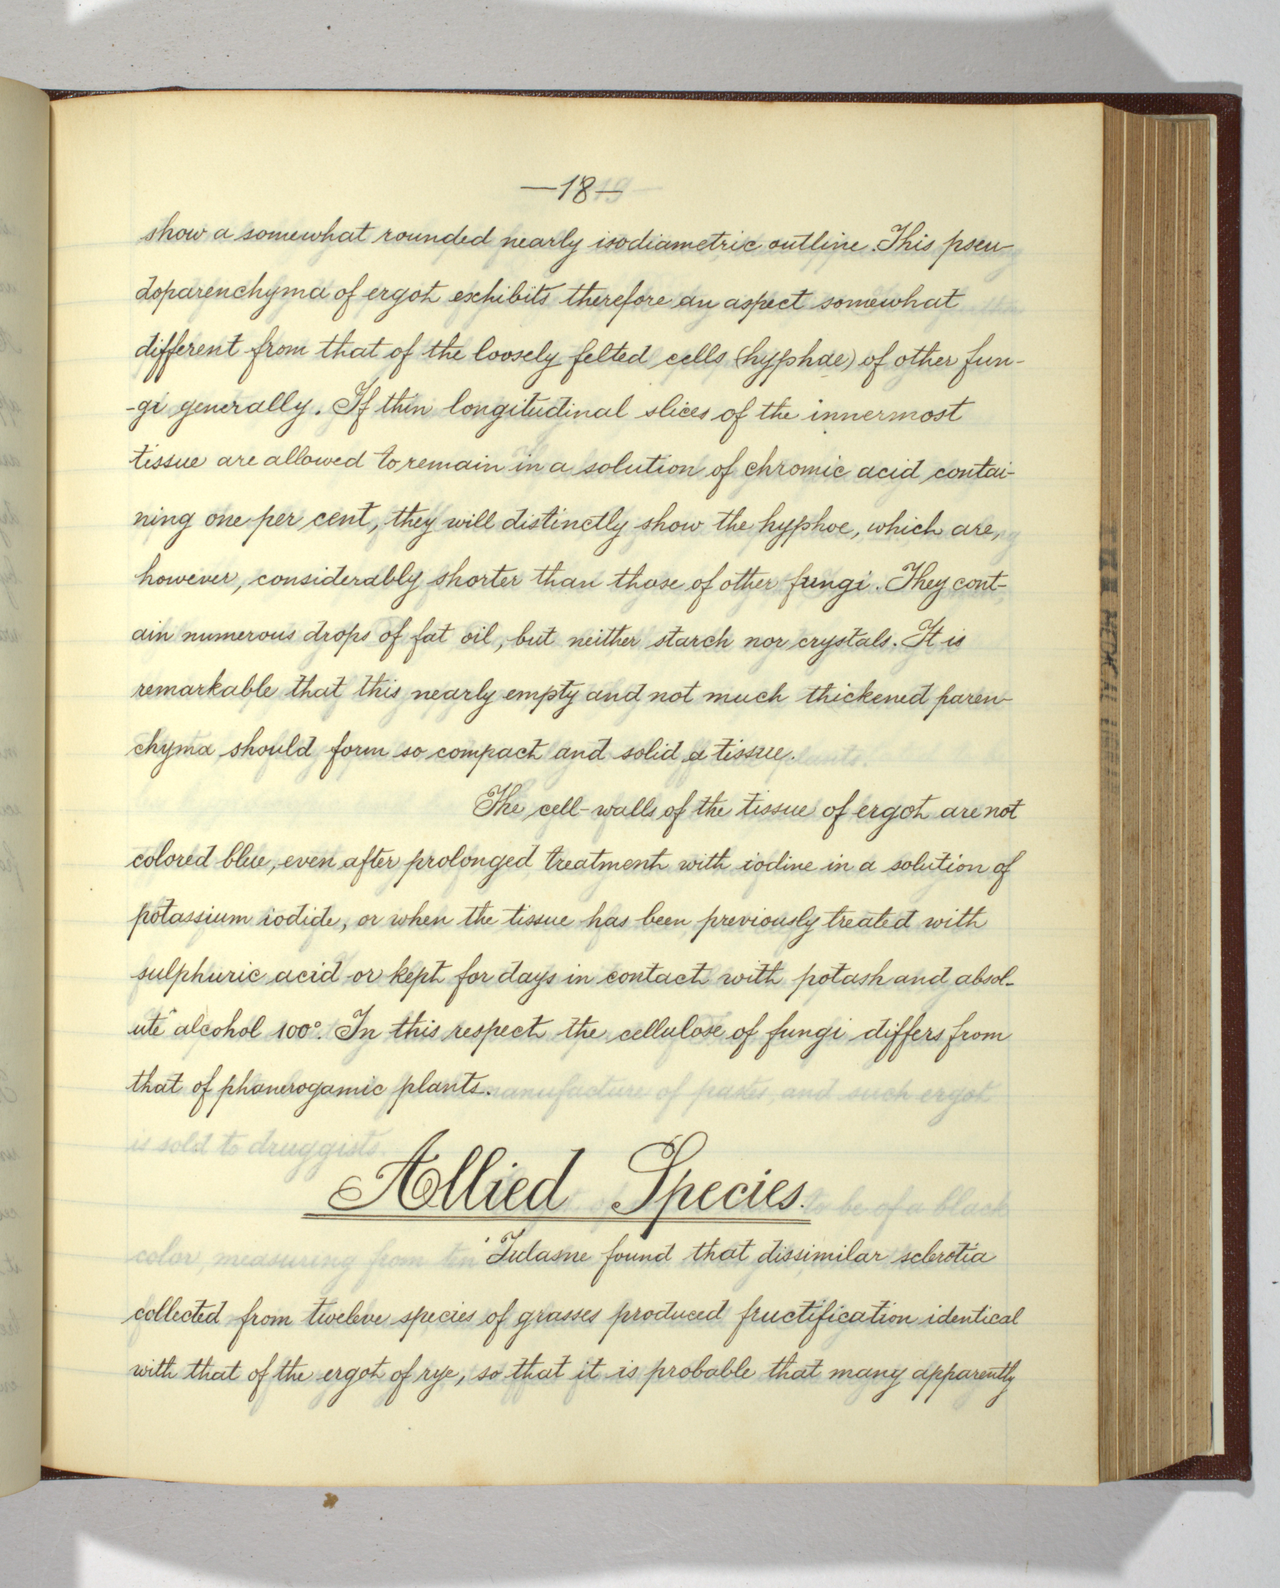 —18—
show a somewhat rounded nearly isodiametric outline. This pseu-
doparenchyma of ergot exhibits therefore an aspect somewhat
different from that of the loosely felted cells (hyphae) of other fun-
-gi generally. If thin longitudinal slices of the innermost
tissue are allowed to remain in a solution of chromic acid contai-
ning one per cent, they will distinctly show the hyphoe, which are,
however, considerably shorter than those of other fungi. They cont-
ain numerous drops of fat oil, but neither starch nor crystals. It is
remarkable that this nearly empty and not much thickened paren-
chyma should form so compact and solid a tissue.
The cell-walls of the tissue of ergot are not
colored blue, even after prolonged treatment with iodine in a solution of
potassium iodide, or when the tissue has been previously treated with
sulphuric acid or kept for days in contact with potash and absol-
ute alcohol 100°. In this respect the cellulose of fungi differs from
that of phanerogamic plants.
Allied Species.
Tulasne found that dissimilar sclerotia
collected from tweleve species of grasses produced fructification identical
with that of the ergot of rye, so that it is probable that many apparently